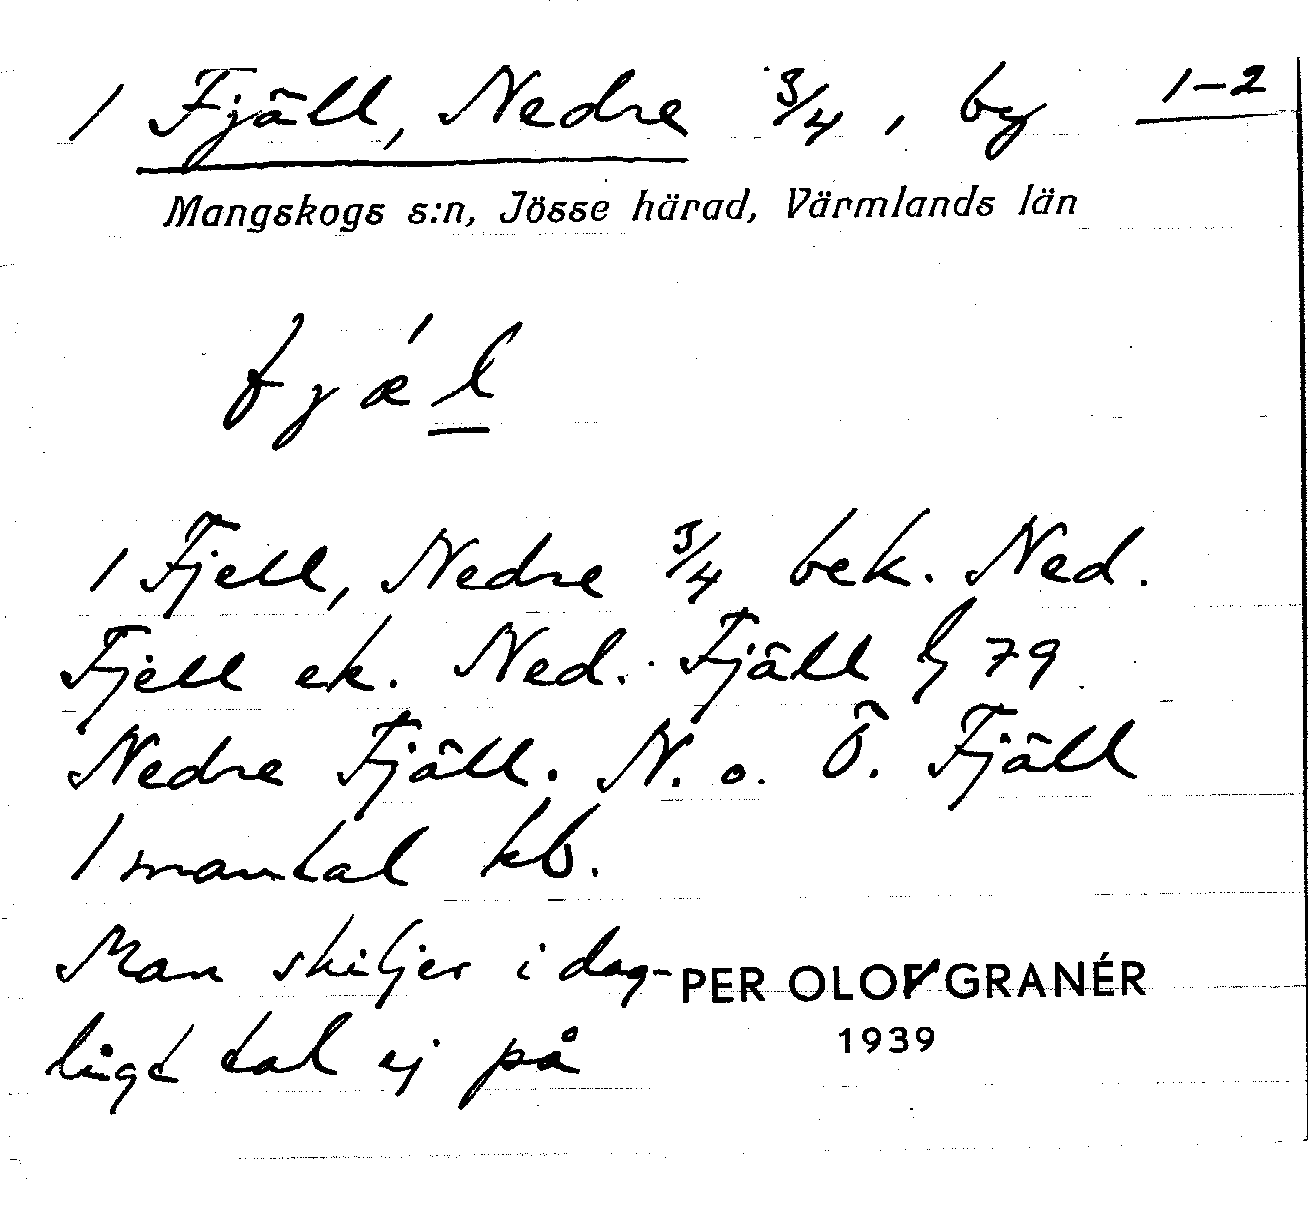 1 Fjäll, Nedre 3/4, by 1-2
Mangskogs s:n, Jösse härad, Värmlands län
fjǽl
1 Fjell, Nedre 3/4 bek. Ned.
Fjell ek. Ned. Fjäll 79
Nedre Fjäll. N. o. Ö. Fjäll
1 mantal kb.
Man skiljer i dag-
ligt tal ej på
PER OLOF GRANÉR
1939